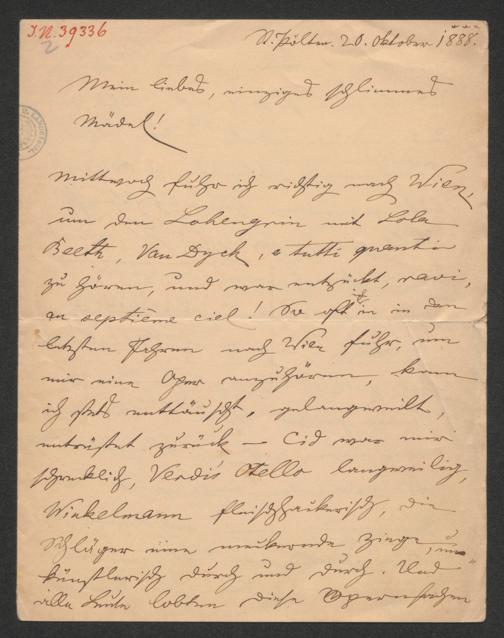 I.N. 39336
2
St. Pölten. 20. Oktober 1888.
Mein liebes, einziges schlimmes
Mädel!
Mittwoch fuhr ich richtig nach Wien,
um den Lohengrin mit Lola
Beeth, Van Dyck, e tutti quanti
zu hören, und war entzückt, ravi,
au septième ciel! So oft ich in den
letzten Jahren nach Wien fuhr, um
mir eine Oper anzuhören, kam
ich stets enttäuscht, gelangweilt,
entrüstet zurück — Cid war mir
schrecklich, Verdis Otello langweilig,
Winkelmann fleischhackerisch, die
Schläger eine meckernde Ziege,
künstlerisch durch und durch. Und
alle Leute lobten diese Opernsachen